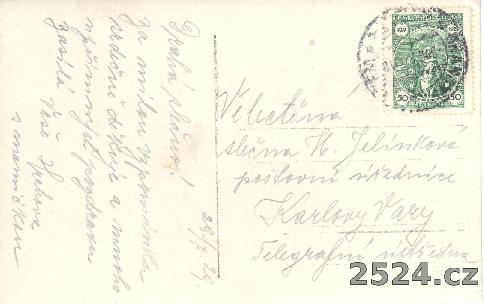 Drahá slečno!
Za milou vzpomínku
srdečně děkuje a mnoho
upřímných pozdravů
zasílá Vaše
s maminkou
29/7 29.
Velectěná
slečna Jelínková
poštovní úřednice
Karlovy Vary
Telegrafní ústředna
929 1929
50 50
2524.cz